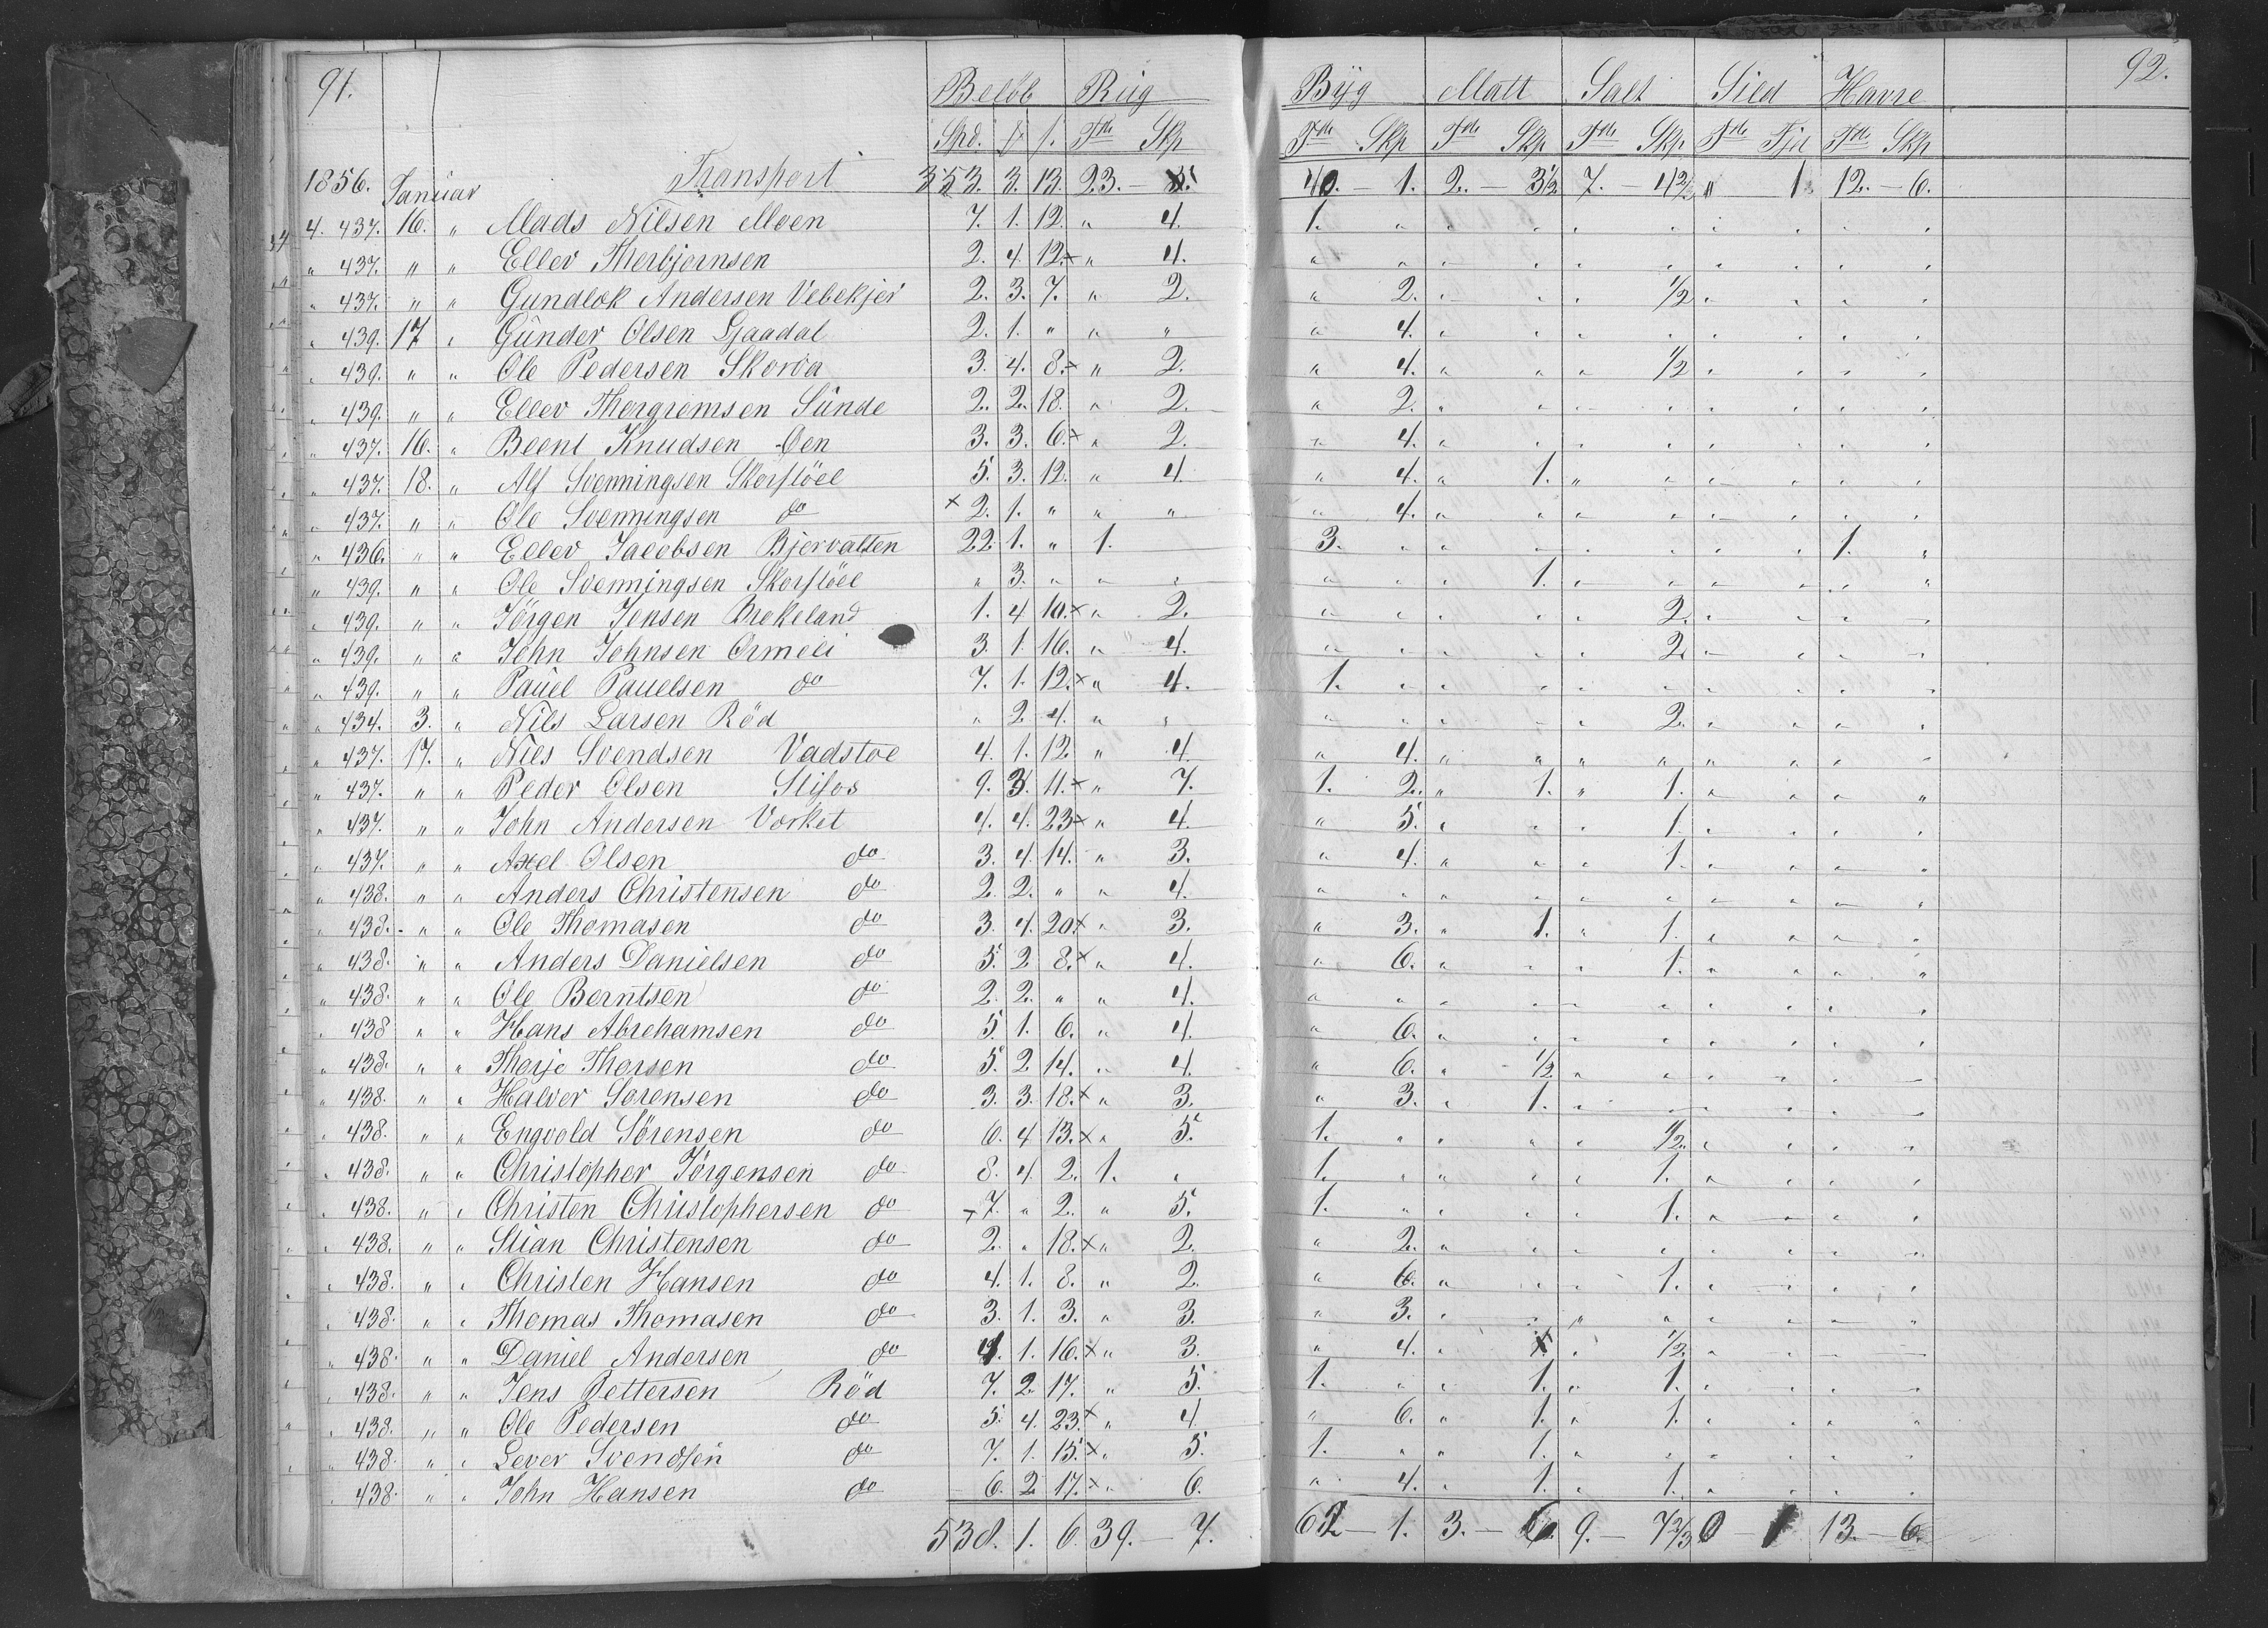 91. 92.
Beløb Rüg Byg Malt Salt Sild Havre
Spd. ƒ ſ. Tdr Skp Tdr Skp Tdr Skp Tdr Skp Tdr Fjd Tdr Skp
1856. Januar Transport 353. 3. 13. 23. — 5. 40. — 1. 2. — 3½ 7. — 4⅔ " 1. 12. — 6.
4. 437. 16. " Mads Nilsen Moen 7. 1. 12. " 4. 1. " " " " " " " " "
" 437. " " Ellev Therbjørnsen 2. 4. 12. × " 4. " " " " " " " " " "
" 437. " " Gundlok Andersen Vebekjer 2. 3. 7. " 2. " 2. " " " ½ " " " "
" 439. 17 " Günder Olsen Ljaadal 2. 1. " " " " 4. " " " " " " " "
" 439. " " Ole Pedersen Skorva 3. 4. 8. × " 2. " 4. " " " ½ " " " "
" 439. " " Ellev Thorgrømsen Sünde 2. 2. 18. " 2. " 2. " " " " " " " "
" 437. 16. " Beent Knudsen Øen 3. 3. 6. × " 2. " 4. " " " " " " " "
" 437. 18. " Alf Svenningsen Skorstöel 5. 3. 12. " 4. " 4. " 1. " " " " " "
" 437. " " Ole Svenningsen do × 2. 1. " " " " 4. " " " " " " " "
" 436. " " Ellev Jacobsen Bjervatten 22. 1. " 1. 3. " " " " " " " 1. "
" 439. " " Ole Svenningsen Skorstöel " 3. " " " " " " 1. " " " " " "
" 439. " " Jörgen Jensen Brekeland 1. 4. 10. × " 2. " " " " " 2. " " " "
" 439. " " John Johnsen Ormeli 3. 1. 16. " 4. " " " " " 2. " " " "
" 439. " " Paüel Pauelsen do 7. 1. 12. × " 4. 1. " " " " " " " " "
" 434. 3. " Nils Larsen Röd " 2. 4. " " " " " " " 2. " " " "
" 437. 17. " Niels Svendsen Vadstoe 4. 1. 12 " 4. " 4. " " " " " " " "
" 437. " " Peder Olsen Stifos 9. 3. 11. × " 7. 1. 2. " 1. " 1. " " " "
" 437. " " John Andersen Vorket 4. 4. 23 × " 4. " 5. " " " 1. " " " "
" 437. " " Axel Olsen do 3. 4. 14. " 3. " 4. " " " 1. " " " "
" 438. " " Anders Christensen do 2. 2. " " 4. " " " " " " " " " "
" 438. " " Ole Thomasen do 3. 4. 20. × " 3. " 3. " 1. " 1. " " " "
" 438. " " Anders Danielsen do 5. 2. 8. × " 4. " 6. " " " 1. " " " "
" 438. " " Ole Berntsen do 2. 2. " " 4. " " " " " " " " " "
" 438 " " Hans Abrehamsen do 5. 1. 6. " 4. " 6. " " " " " " " "
" 438. " " Thorje Thorsen do 5. 2. 14. " 4. " 6. " ½ " " " " " "
" 438. " " Halver Sorensen do 3. 3. 18. × " 3. " 3. " 1. " " " " " "
" 438. " " Engvold Sörensen do 6. 4. 13. × " 5. 1. " " " " ½ " " " "
" 438. " " Christopher Jörgensen do 8. 4. 2. 1. " 1. " " " " 1. " " " "
" 438. " " Christen Christophersen do × 7. " 2. " 5. 1. " " " " 1. " " " "
" 438. " " Stian Christensen do 2. " 18. × " 2. " 2. " " " " " " " "
" 438. " " Christen Hansen do 4. 1. 8. " 2. " 6. " " " 1. " " " "
" 438. " " Thomas Thomasen do 3. 1. 3. " 3. " 3. " " " " " " " "
" 438. " " Daniel Andersen do 4. 1. 16. × " 3. " 4. " " ½ " " " "
" 438. " " Jens Pettersen Röd 7. 2. 17. " 5. 1. " " 1. " 1. " " " "
" 438. " " Ole Pedersen do 5. 4. 23. × " 4. " 6. " 1. " 1. " " " "
" 438. " " Lever Svendsen do 7. 1. 15. × " 5. 1. " " 1. " " " " " "
" 438. " " John Hansen do 6. 2. 17. × " 6. " 4. " 1. " 1. " " " "
538. 1. 6. 39. — 7. 62 — 1. 3. — 6. 9. — 7⅔ 0 — 1 13. — 6.